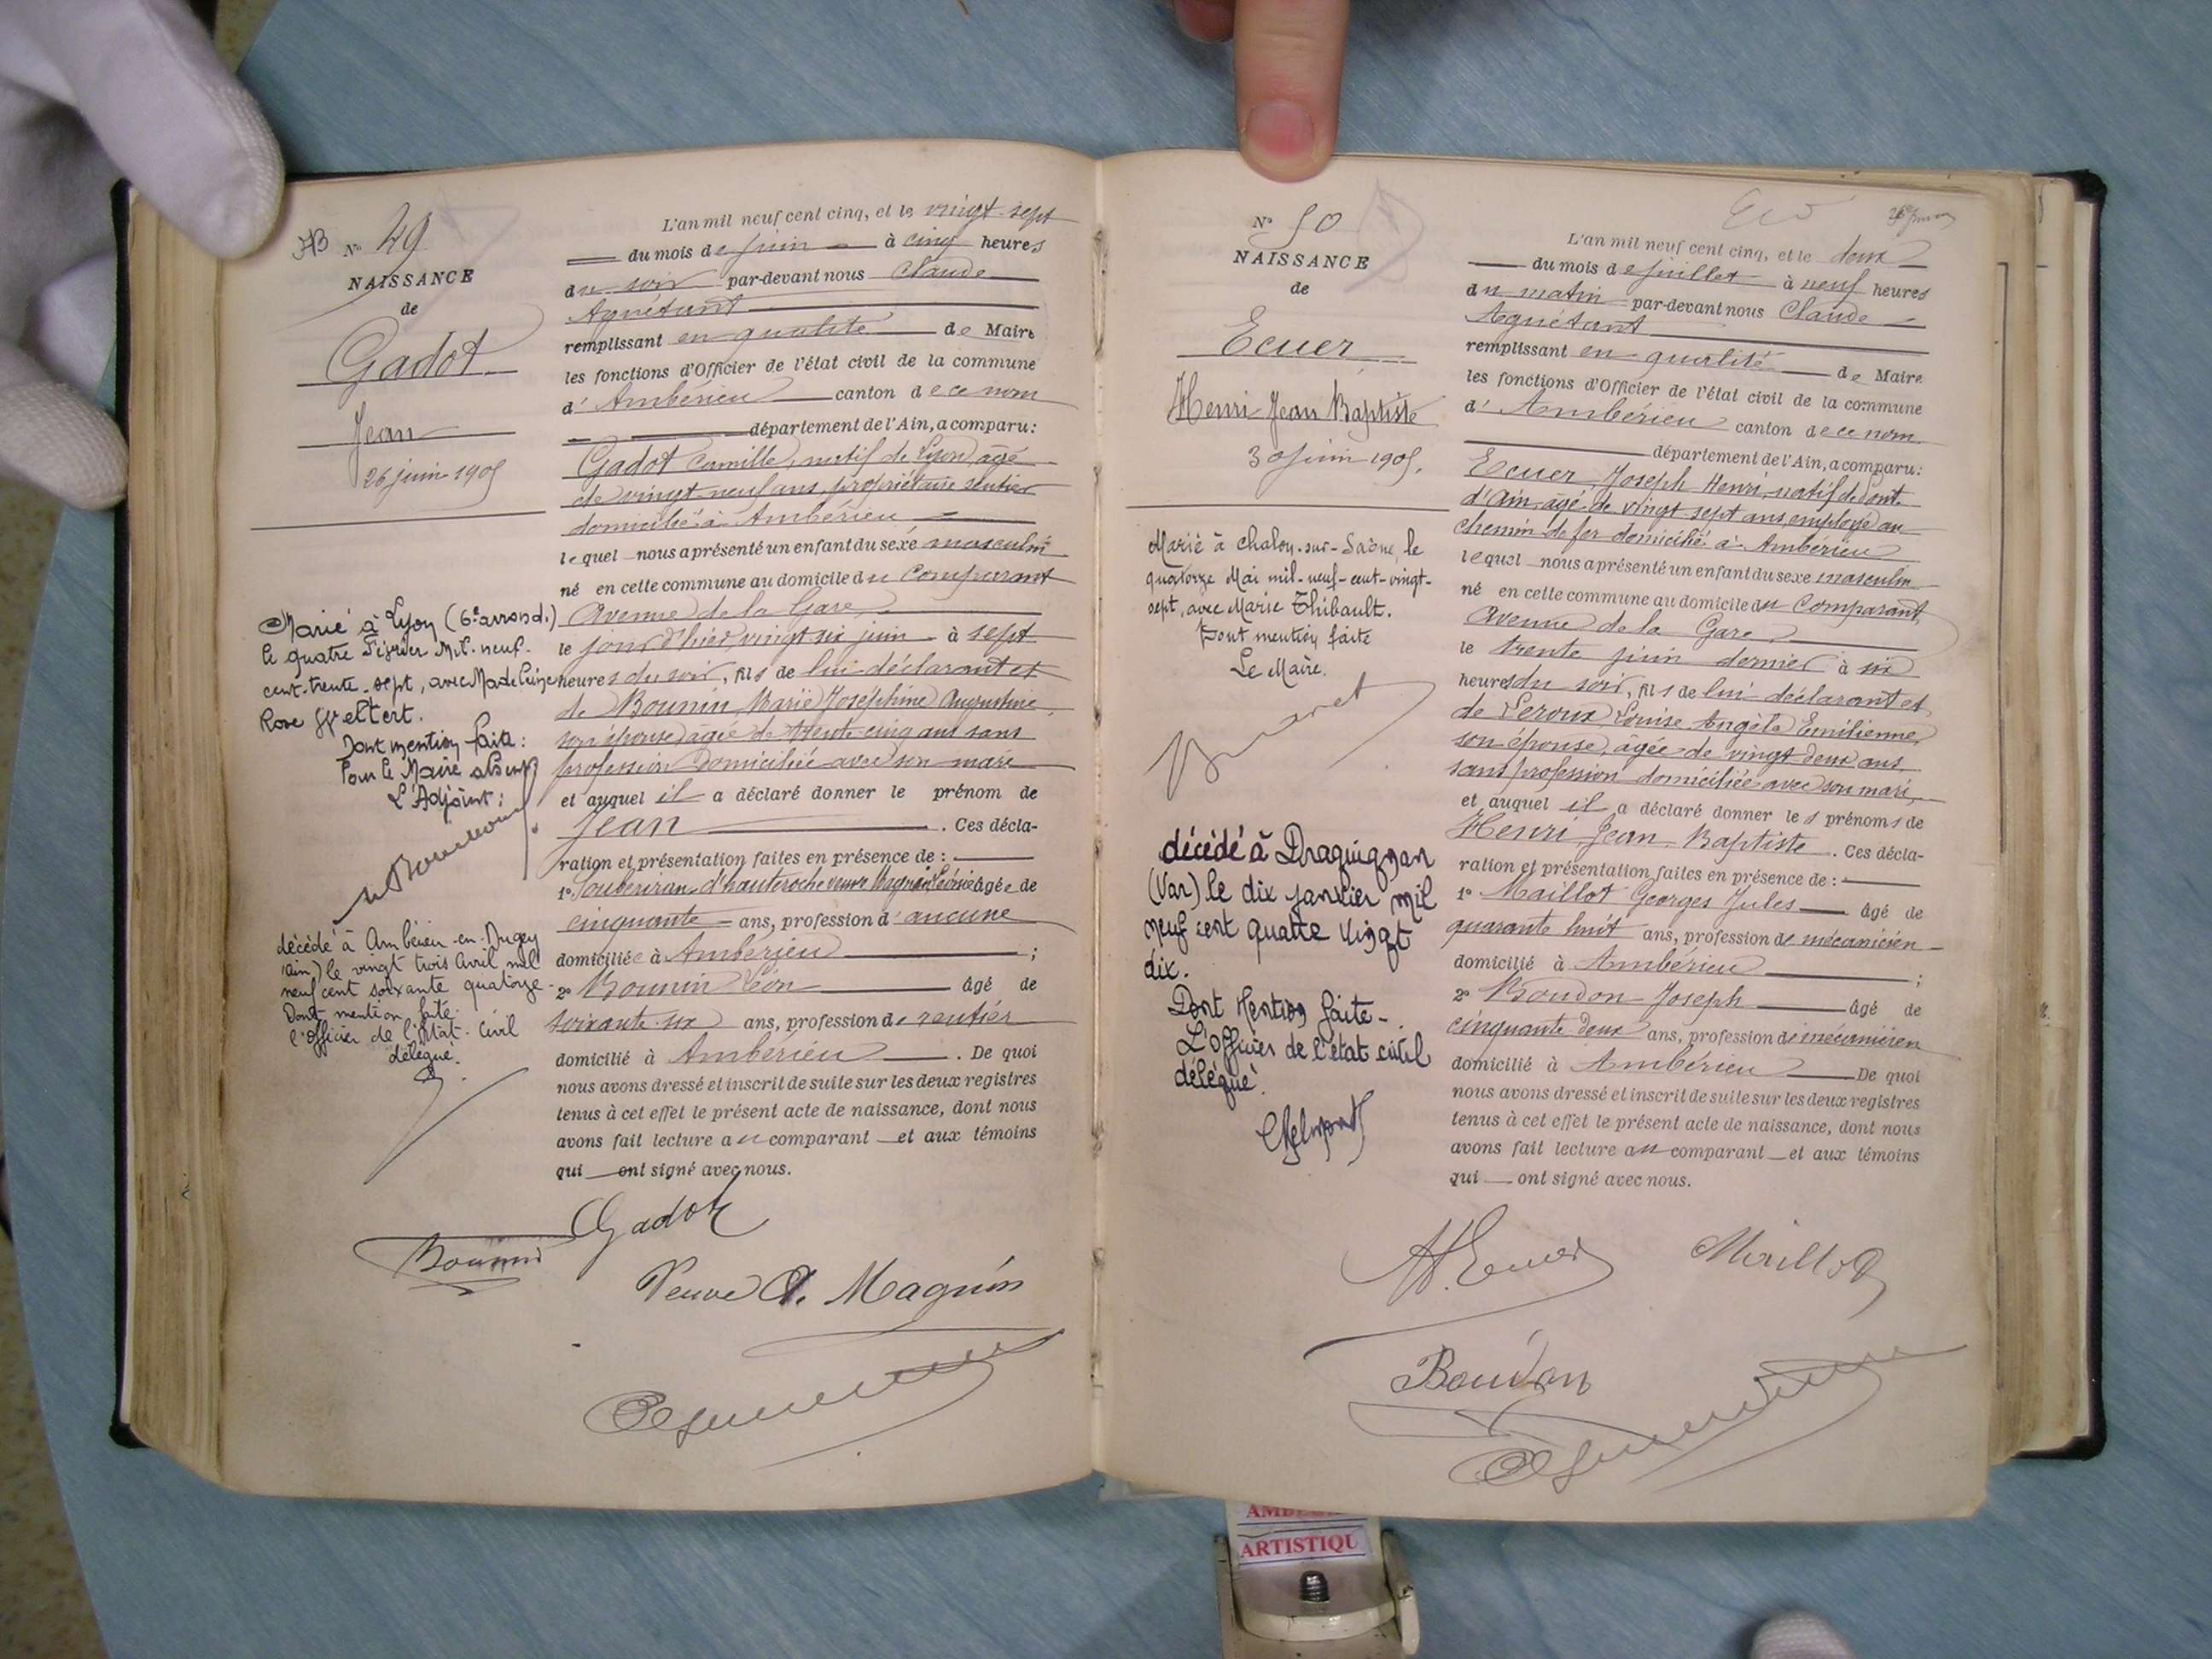 N° 49
NAISSANCE
de
Gadot
Jean
26 juin 1905
Marié à Lyon (6e arrond.)
le quatre Février Mil-neuf-
cent-trente-sept, avec Madeleine
Rose
Dont mention faite:
Pour le Maire absent
L'Adjoint:
décédé à Ambérieu-en-Bugey
(Ain) le vingt trois Avril mil
neuf cent soixante quatorze-
Dont mention faite.
l'Officier de l'Etat-Civil
délégué.
L'an mil neuf cent cinq, et le vingt-sept
du mois de juin à cinq heures
du soir par-devant nous Claude
Aguétant
remplissant en qualité de Maire
les fonctions d'Officier de l'état civil de la commune
d'Ambérieu canton de ce nom
département de l'Ain, a comparu:
Gadot Camille, natif de Lyon, agé
de vingt-neuf ans, propriétaire rentier
domicilié à Ambérieu
lequel nous a présenté un enfant du sexe masculin
né en cette commune au domicile du Comparant
Avenue de la Gare
le jour d'hier, vingt six juin à sept
heures du soir, fils de lui déclarant et
de Bounin Marie Joséphine Augustine,
son épouse, agée de trente cinq ans sans
profession domiciliée avec son mari
et auquel il a déclaré donner le prénom de
Jean . Ces décla-
ration et présentation faites en présence de :
1° d'hauteroche veuve Magnin âgée de
cinquante ans, profession d'aucune
domiciliée à Ambérieu ;
2° Bounin Léon âgé de
soixante-six ans, profession de rentier
domicilié à Ambérieu . De quoi
nous avons dressé et inscrit de suite sur les deux registres
tenus à cet effet le présent acte de naissance, dont nous
avons fait lecture au comparant et aux témoins
qui ont signé avec nous.
Gadot
Bounin
Veuve Magnin
N° 50
NAISSANCE
de
Ecuer
Henri Jean Baptiste
30 juin 1905.
Marié à Chalon-sur-Saône, le
quatorze Mai mil-neuf-cent-vingt-
sept, avec Marie Thibault.
Dont mention faite
Le Maire.
décédé à Draguignan
(Var) le dix janvier mil
neuf cent quatre vingt
dix.
Dont Mention faite-
L'Officier de l'état civil
délégué.
L'an mil neuf cent cinq, et le deux
du mois de juillet à neuf heures
du matin par-devant nous Claude
Aguétant
remplissant en qualité de Maire
les fonctions d'Officier de l'état civil de la commune
d'Ambérieu canton de ce nom
département de l'Ain, a comparu:
Ecuer, Joseph Henri, natif de Pont
d'Ain, agé de vingt-sept ans, employé au
chemin de fer domicilié à Ambérieu
lequel nous a présenté un enfant du sexe masculin
né en cette commune au domicile du Comparant,
Avenue de la Gare
le trente juin dernier à six
heures du soir, fils de lui déclarant et
de Leroux Louise Angèle Emilienne,
son épouse, âgée de vingt deux ans,
sans profession domiciliée avec son mari,
et auquel il a déclaré donner les prénoms de
Henri, Jean, Baptiste . Ces décla-
ration et présentation faites en présence de :
1° Maillot Georges Jules âgé de
quarante huit ans, profession de mécanicien
domicilié à Ambérieu ;
2° Boudon Joseph âgé de
cinquante deux ans, profession de mécanicien
domicilié à Ambérieu De quoi
nous avons dressé et inscrit de suite sur les deux registres
tenus à cet effet le présent acte de naissance, dont nous
avons fait lecture au comparant et aux témoins
qui ont signé avec nous.
Maillot
Boudon
ARTISTIQU